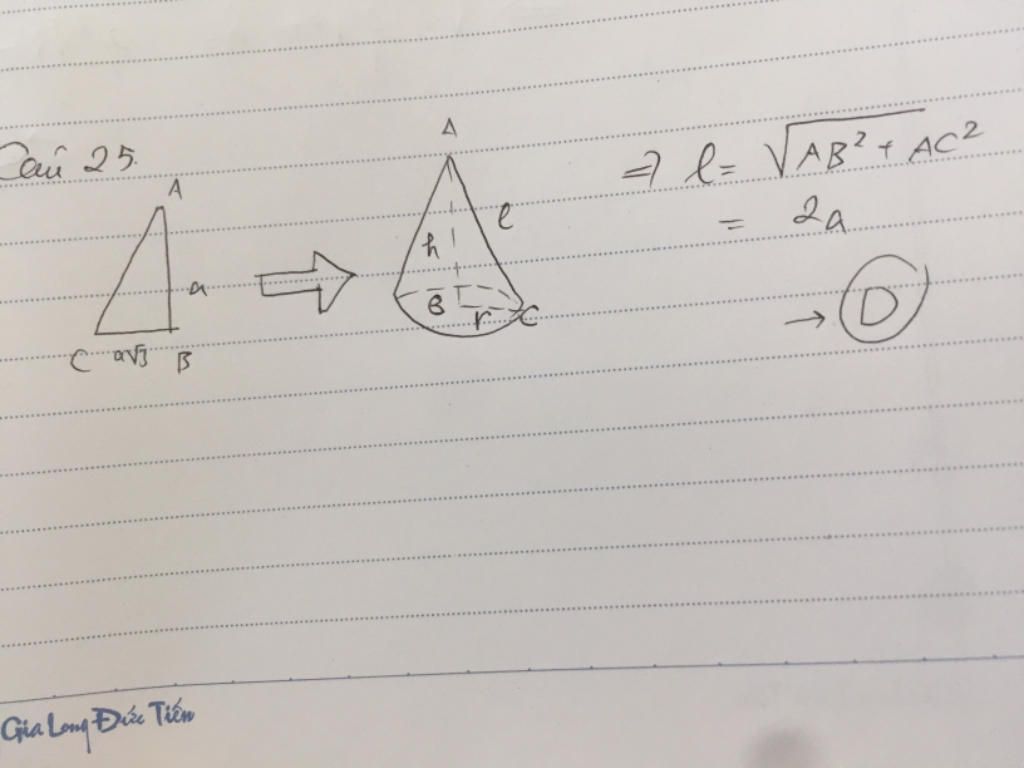 Câu 25.
A
a
C a√3 B
A
h l
B r C
⇒ l = √AB² + AC²
= 2a
→ D
Gia Long Đức Tiến